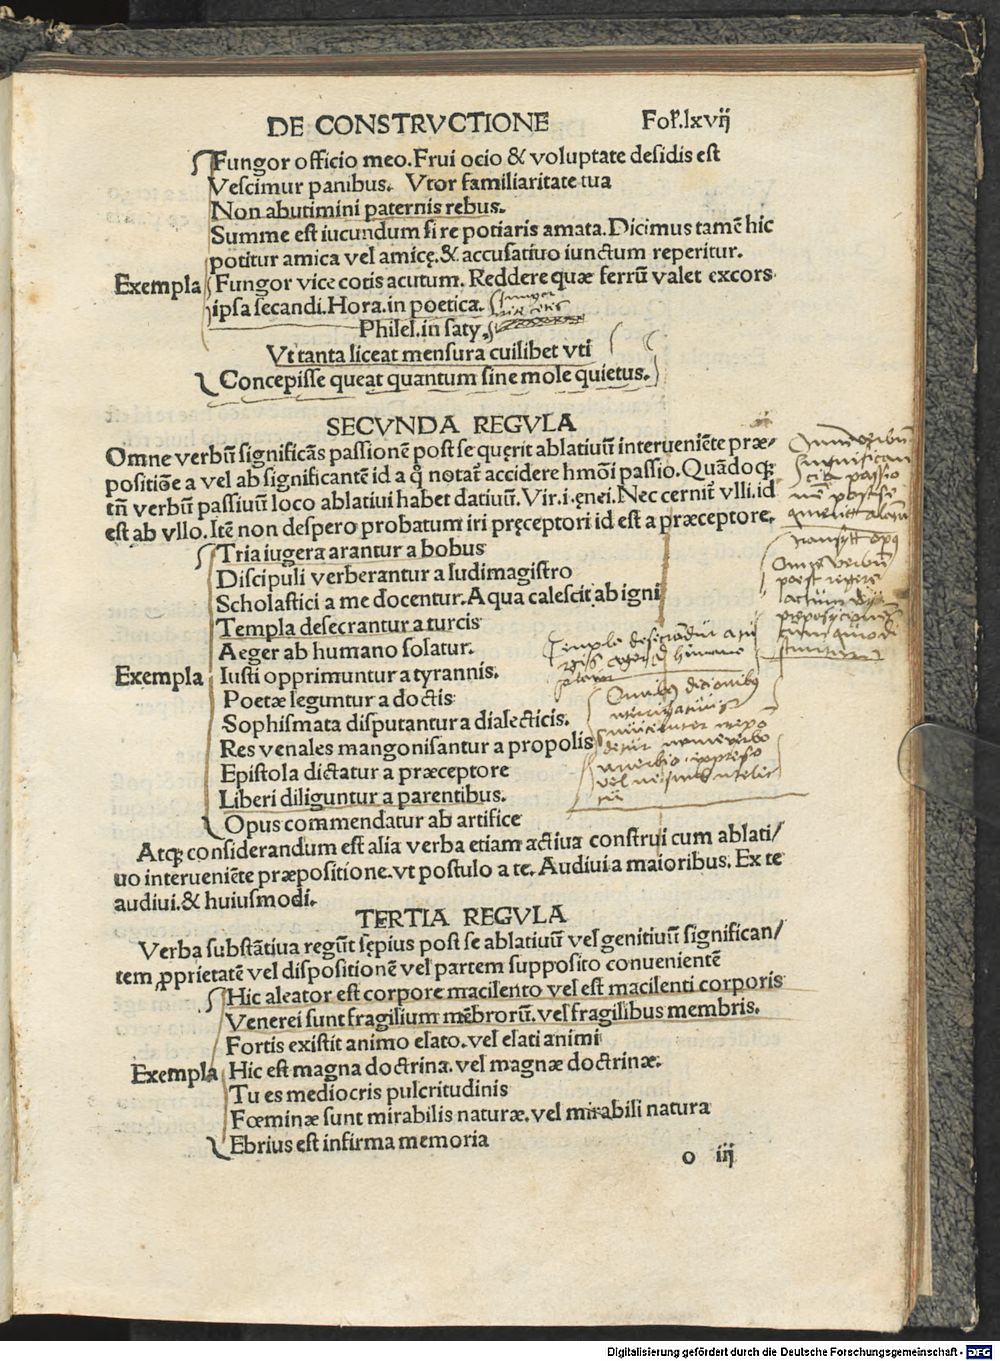 DE CONSTRVCTIONE Fol. lxvij
Fungor officio meo. Frui ocio & voluptate desidis est
Vescimur panibus. Vtor familiaritate tua
Non abutimini paternis rebus.
Summe est iucundum si re potiaris amata. Dicimus tamē hic
potitur amica vel amicę. & accusatiuo iunctum reperitur.
Exempla Fungor vice cotis acutum. Reddere quæ ferrū valet excors
ipsa secandi. Hora. in poetica.
Philel. in saty.
Vt tanta liceat mensura cuilibet vti
Concepisse queat quantum sine mole quietus.
SECVNDA REGVLA
Omne verbū significãs passionē post se quęrit ablatiuū interueniēte præ/
positiõe a vel ab significantē id a q̃ notat̃ accidere hmõi passio. Quãdoqꝫ
tñ verbū passiuū loco ablatiui habet datiuū. Vir. i. ęnei. Nec cernit̃ vlli. id
est ab vllo. Itē non despero probatum iri pręceptori id est a præceptore.
Tria iugera arantur a bobus
Discipuli verberantur a ludimagistro
Scholastici a me docentur. Aqua calescit ab igni
Templa desecrantur a turcis
Aeger ab humano solatur.
Exempla Iusti opprimuntur a tyrannis.
Poetæ leguntur a doctis
Sophismata disputantur a dialecticis.
Res venales mangonisantur a propolis
Epistola dictatur a præceptore
Liberi diliguntur a parentibus.
Opus commendatur ab artifice
Atqꝫ considerandum est alia verba etiam actiua construi cum ablati/
uo interueniēte præpositione. vt postulo a te. Audiui a maioribus. Ex te
audiui. & huiusmodi.
TERTIA REGVLA
Verba substãtiua regūt sępius post se ablatiuū vel genitiuū significan/
tem ꝓprietatē vel dispositionē vel partem supposito conuenientē
Hic aleator est corpore macilento vel est macilenti corporis
Venerei sunt fragilium mēbrorū. vel fragilibus membris.
Fortis existit animo elato. vel elati animi
Exempla Hic est magna doctrina. vel magnæ doctrinæ.
Tu es mediocris pulcritudinis
Fœminæ sunt mirabilis naturæ. vel mirabili natura
Ebrius est infirma memoria
o iij
Digitalisierung gefördert durch die Deutsche Forschungsgemeinschaft - DFG